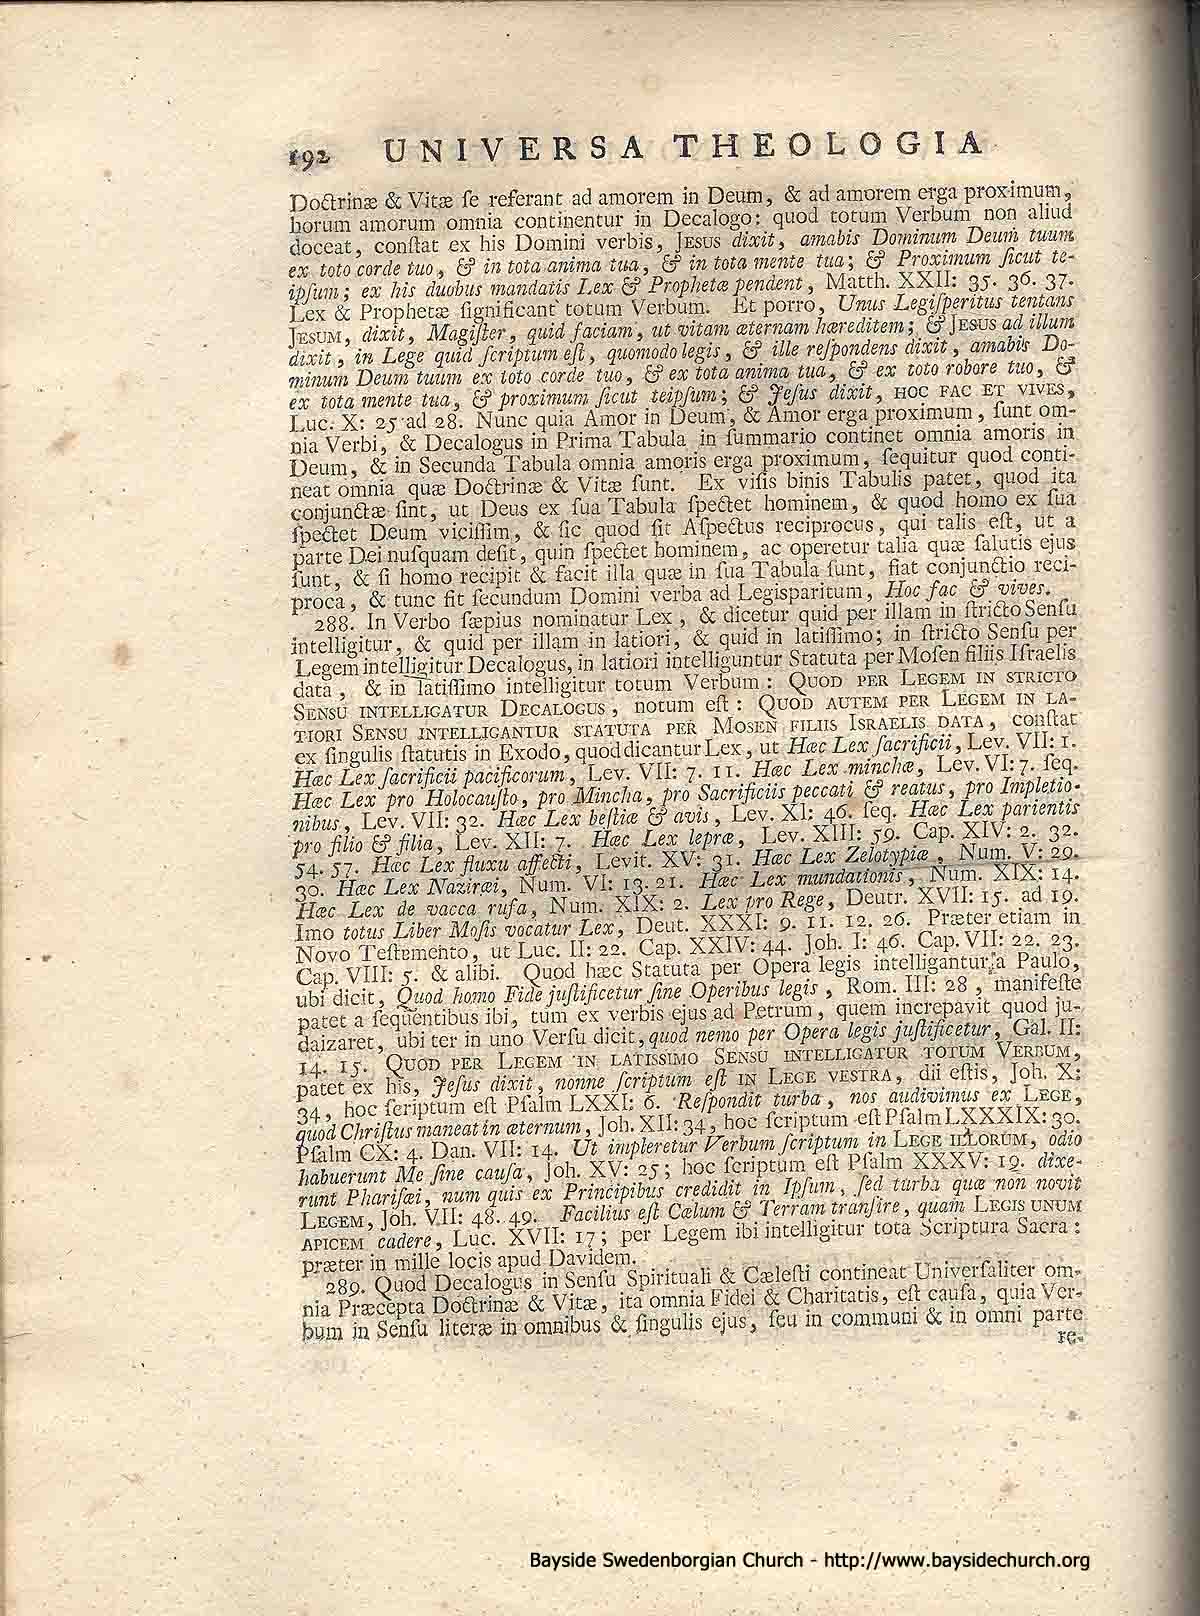 192 UNIVERSA THEOLOGIA
Doctrinæ & Vitæ ſe referant ad amorem in Deum, & ad amorem erga proximum,
horum amorum omnia continentur in Decalogo: quod totum Verbum non aliud
doceat, conſtat ex his Domini verbis, JESUS dixit, amabis Dominum Deum tuum
ex toto corde tuo, & in tota anima tua, & in tota mente tua; & Proximum ſicut te-
ipſum; ex his duobus mandatis Lex & Prophetæ pendent, Matth. XXII: 35. 36. 37.
Lex & Prophetæ ſignificant totum Verbum. Et porro, Unus Legiſperitus tentans
JESUM, dixit, Magiſter, quid faciam, ut vitam æternam hæreditem; & JESUS ad illum
dixit, in Lege quid ſcriptum eſt, quomodo legis, & ille reſpondens dixit, amabis Do-
minum Deum tuum ex toto corde tuo, & ex tota anima tua, & ex toto robore tuo, &
ex tota mente tua, & proximum ſicut teipſum; & Jeſus dixit, HOC FAC ET VIVES,
Luc. X: 25 ad 28. Nunc quia Amor in Deum, & Amor erga proximum, ſunt om-
nia Verbi, & Decalogus in Prima Tabula in ſummario continet omnia amoris in
Deum, & in Secunda Tabula omnia amoris erga proximum, ſequitur quod conti-
neat omnia quæ Doctrinæ & Vitæ ſunt. Ex viſis binis Tabulis patet, quod ita
conjunctæ ſint, ut Deus ex ſua Tabula ſpectet hominem, & quod homo ex ſua
ſpectet Deum viciſſim, & ſic quod ſit Aſpectus reciprocus, qui talis eſt, ut a
parte Dei nuſquam deſit, quin ſpectet hominem, ac operetur talia quæ ſalutis ejus
ſunt, & ſi homo recipit & facit illa quæ in ſua Tabula ſunt, fiat conjunctio reci-
proca, & tunc fit ſecundum Domini verba ad Legisparitum, Hoc fac & vives.
288. In Verbo ſæpius nominatur Lex, & dicetur quid per illam in ſtricto Senſu
intelligitur, & quid per illam in latiori, & quid in latiſſimo; in ſtricto Senſu per
Legem intelligitur Decalogus, in latiori intelliguntur Statuta per Moſen filiis Iſraelis
data, & in latiſſimo intelligitur totum Verbum: QUOD PER LEGEM IN STRICTO
SENSU INTELLIGATUR DECALOGUS, notum eſt: QUOD AUTEM PER LEGEM IN LA-
TIORI SENSU INTELLIGANTUR STATUTA PER MOSEN FILIIS ISRAELIS DATA, conſtat
ex ſingulis ſtatutis in Exodo, quod dicantur Lex, ut Hæc Lex ſacrificii, Lev. VII: 1.
Hæc Lex ſacrificii pacificorum, Lev. VII: 7. 11. Hæc Lex minchæ, Lev. VI: 7. ſeq.
Hæc Lex pro Holocauſto, pro Mincha, pro Sacrificiis peccati & reatus, pro Impletio-
nibus, Lev. VII: 32. Hæc Lex beſtiæ & avis, Lev. XI: 46. ſeq. Hæc Lex parientis
pro filio & filia, Lev. XII: 7. Hæc Lex lepræ, Lev. XIII: 59. Cap. XIV: 2. 32.
54. 57. Hæc Lex fluxu affecti, Levit. XV: 31. Hæc Lex Zelotypiæ, Num. V: 29.
30. Hæc Lex Naziræi, Num. VI: 13. 21. Hæc Lex mundationis, Num. XIX: 14.
Hæc Lex de vacca rufa, Num. XIX: 2. Lex pro Rege, Deutr. XVII: 15. ad 19.
Imo totus Liber Moſis vocatur Lex, Deut. XXXI: 9. 11. 12. 26. Præter etiam in
Novo Teſtamento, ut Luc. II: 22. Cap. XXIV: 44. Joh. I: 46. Cap. VII: 22. 23.
Cap. VIII: 5. & alibi. Quod hæc Statuta per Opera legis intelligantur a Paulo,
ubi dicit, Quod homo Fide juſtificetur ſine Operibus legis, Rom. III: 28, manifeſte
patet a ſequentibus ibi, tum ex verbis ejus ad Petrum, quem increpavit quod ju-
daizaret, ubi ter in uno Verſu dicit, quod nemo per Opera legis juſtificetur, Gal. II:
14. 15. QUOD PER LEGEM IN LATISSIMO SENSU INTELLIGATUR TOTUM VERBUM,
patet ex his, Jeſus dixit, nonne ſcriptum eſt IN LEGE VESTRA, dii eſtis, Joh. X:
34, hoc ſcriptum eſt Pſalm LXXI: 6. Reſpondit turba, nos audivimus ex LEGE,
quod Chriſtus maneat in æternum, Joh. XII: 34, hoc ſcriptum eſt Pſalm LXXXIX: 30.
Pſalm CX: 4. Dan. VII: 14. Ut impleretur Verbum ſcriptum in LEGE ILLORUM, odio
habuerunt Me ſine cauſa, Joh. XV: 25; hoc ſcriptum eſt Pſalm XXXV: 19. dixe-
runt Phariſæi, num quis ex Principibus credidit in Ipſum, ſed turba quæ non novit
LEGEM, Joh. VII: 48. 49. Facilius eſt Cœlum & Terram tranſire, quam LEGIS UNUM
APICEM cadere, Luc. XVII: 17; per Legem ibi intelligitur tota Scriptura Sacra:
præter in mille locis apud Davidem.
289. Quod Decalogus in Senſu Spirituali & Cæleſti contineat Univerſaliter om-
nia Præcepta Doctrinæ & Vitæ, ita omnia Fidei & Charitatis, eſt cauſa, quia Ver-
bum in Senſu literæ in omnibus & ſingulis ejus, ſeu in communi & in omni parte
re-
Bayside Swedenborgian Church - http://www.baysidechurch.org